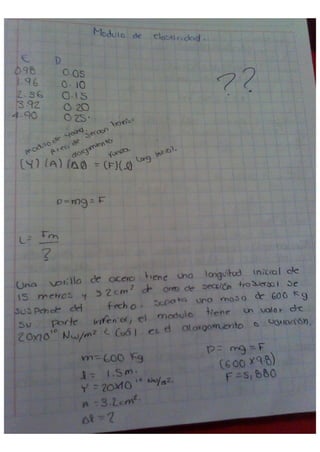 Modulo de elasticidad.
E D
0.98 0.05
1.96 0.10
2.96 0.15
3.92 0.20
4.90 0.25.
??
modulo de young Area de seccion transv. alargamiento Fuerza long inicial.
(Y) (A) (Δl) = (F)(l)
p=mg=F
L= Fm
?
Una varilla de acero tiene una longitud inicial de
15 metros y 3.2cm² de area de sección trasversal se
suspende del techo. soporta una masa de 600 Kg
su parte inferior, el modulo tiene un valor de
20x10¹⁰ Nw/m² ¿Cual es el alargamiento o
m=600 Kg
l= 1.5m.
Y=20x10¹⁰ Nw/m².
A=3.2cm².
Δl=?
P= mg=F
(600)(9.8)
F=5,880